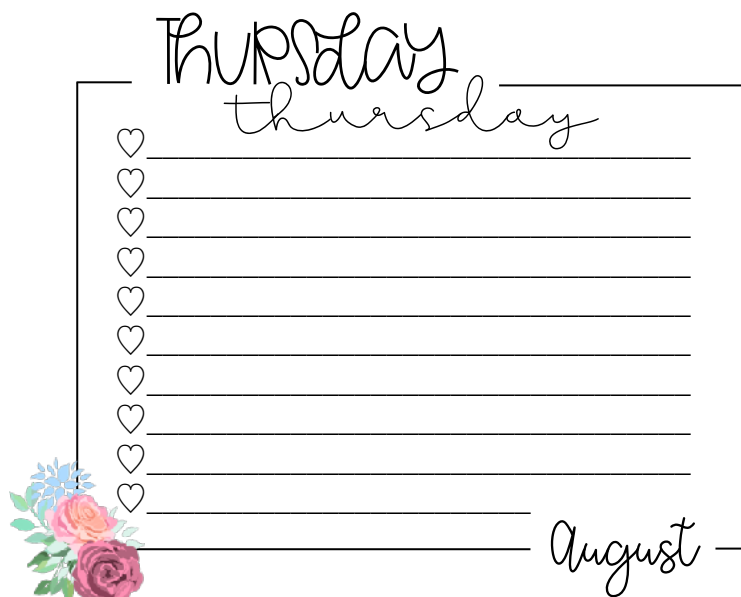 Thursday
thursday
August